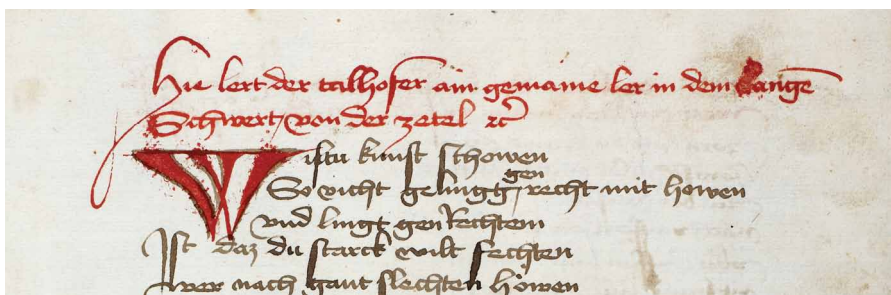 Hie lert der talhofer ain gemaine ler in dem langē
Schwert von der zetel ꝛc̄
Wistu kunst schowen
So vicht gelingg gen recht mit howen
vnd lingg gen Rechtem
Ist daz du starck wilt fechten
wer nach gaut slechten höwen